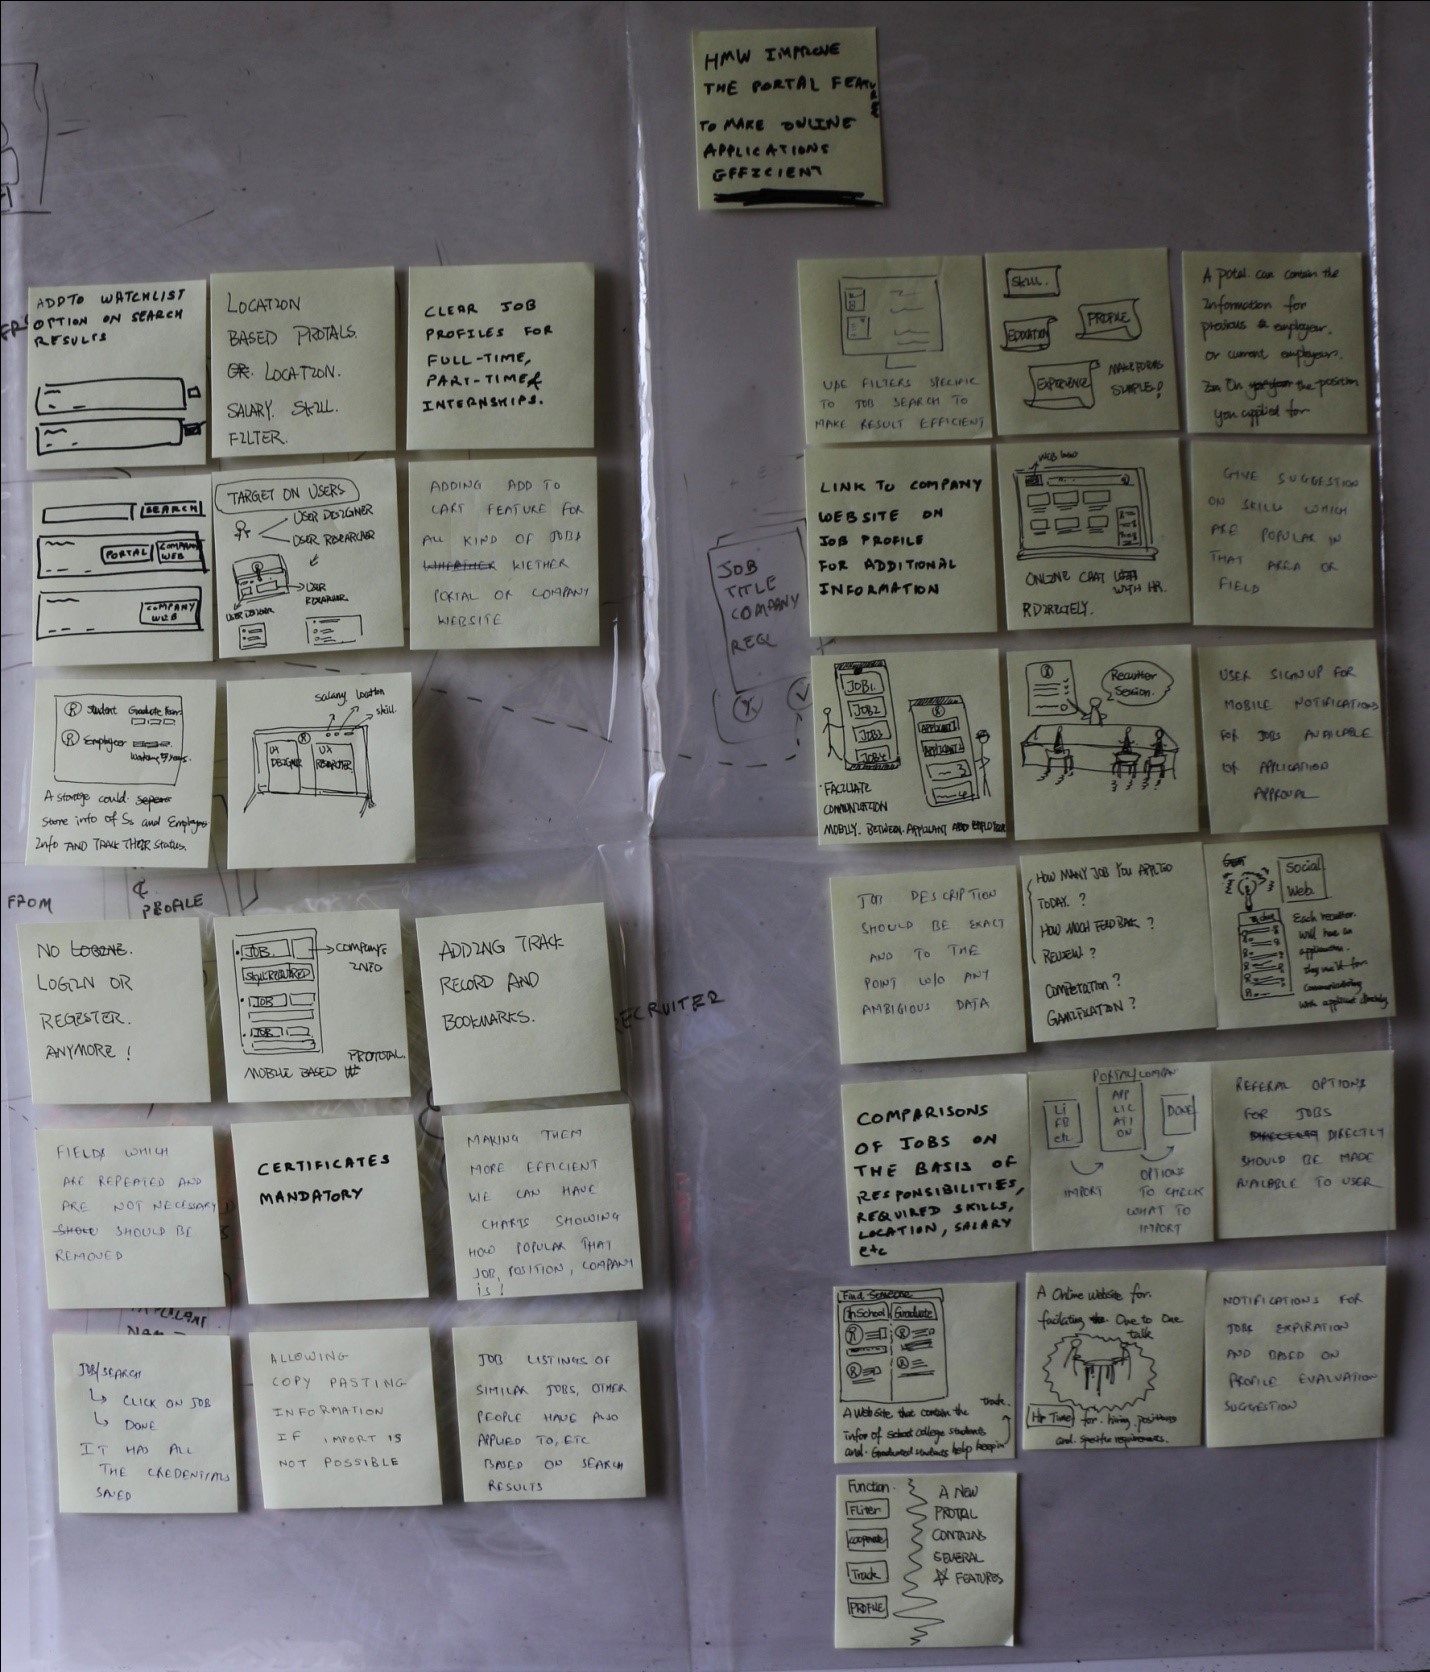 HMW IMPROVE
THE PORTAL FEATURE
TO MAKE ONLINE
APPLICATIONS
EFFICIENT
ADD TO WATCHLIST
OPTION ON SEARCH
RESULTS
LOCATION
BASED PROTALS.
OR. LOCATION.
SALARY. SKILL.
FILTER.
CLEAR JOB
PROFILES FOR
FULL-TIME,
PART-TIME &
INTERNSHIPS.
SEARCH
PORTAL
COMPANY
WEB
COMPANY
WEB
TARGET ON USERS
USER DESIGNER
USER RESEARCHER
ADDING ADD TO
CART FEATURE FOR
ALL KIND OF JOBS
WHEATHER WIETHER
PORTAL OR COMPANY
WEBSITE
Student Graduate
Employer
A storage could
store info of Ss and Employers
Info AND TRACK THEIR Status.
Salary location
skill.
UX
DESIGNER
UX
RESEARCHER
FROM
&
PROFILE
NO
LOGIN OR
REGESTER.
ANYMORE !
JOB.
COMPANY'S
INFO
SKILL REQUIRED
JOB
JOB
MOBILE BASED
PROTOTAL.
ADDING TRACK
RECORD AND
BOOKMARKS.
RECRUITER
FIELDS WHICH
ARE REPEATED AND
ARE NOT NECESSARY
SHOULD SHOULD BE
REMOVED
CERTIFICATES
MANDATORY
MAKING THEM
MORE EFFICIENT
WE CAN HAVE
CHARTS SHOWING
HOW POPULAR THAT
JOB, POSITION, COMPANY
is !
JOB/SEARCH
CLICK ON JOB
DONE
IT HAS ALL
THE CREDENTIALS
SAVED
ALLOWING
COPY PASTING
INFORMATION
IF IMPORT IS
NOT POSSIBLE
JOB LISTINGS OF
SIMILAR JOBS, OTHER
PEOPLE HAVE ALSO
APPLIED TO, ETC
BASED ON SEARCH
RESULTS
JOB
TITLE
COMPANY
REQ
USE FILTERS SPECIFIC
TO JOB SEARCH TO
MAKE RESULT EFFICIENT
Skill.
EDUCATION
PROFILE
EXPERIENCE
MAKE FORMS
SIMPLE!
A potal. can contain the
Information for
previous employer.
or current employers.
On the position
you applied for
LINK TO COMPANY
WEBSITE ON
JOB PROFILE
FOR ADDITIONAL
INFORMATION
ONLINE CHAT WITH HR.
RDIRECTELY.
GIVE SUGGESTION
ON SKILL WHICH
ARE POPULAR IN
THAT AREA OR
FIELD
JOB1.
JOB2
JOB3
JOB4
APPLICANT1
APPLICANT2
3
4
FACILIATE
COMMUNIZATION
MOBILY. BETWEEN. APPLICANT AND EMPLOYER
Recruiter
Session.
USER SIGNUP FOR
MOBILE NOTIFICATIONS
FOR JOBS AVAILABLE
OR APPLICATION
APPROVAL
JOB DESCRIPTION
SHOULD BE EXACT
AND TO THE
POINT W/O ANY
AMBIGIOUS DATA
HOW MANY JOB YOU APPLIED
TODAY. ?
HOW MUCH FEEDBACK ?
REVIEW ?
COMPETATION ?
GAMIFICATION ?
Social
Web.
Each recruiter.
will have an
applicants.
communicating
with applicant directly
COMPARISONS
OF JOBS ON
THE BASIS OF
RESPONSIBILITIES,
REQUIRED SKILLS,
LOCATION, SALARY
etc
PORTAL/COMPAN
LI
FB
etc
APP
LIC
ATI
ON
DONE
IMPORT
OPTIONS
TO CHECK
WHAT TO
IMPORT
REFERAL OPTIONS
FOR JOBS
DIRECTLY
SHOULD BE MADE
AVAILABLE TO USER
Find Someone
In School Graduate
Track.
A Web Site that contain the
infor of School College students
and Graduated students help keep in
A Online Website for.
faciliating One to One
talk
HR Time for. hiring. positions
and specific requirements.
NOTIFICATIONS FOR
JOBS EXPIRATION
AND BASED ON
PROFILE EVALUATION
SUGGESTION
Function.
Fliter
COOPERATE
Track
PROFILE
A NEW
PROTAL
CONTAINS
SEVERAL
FEATURES